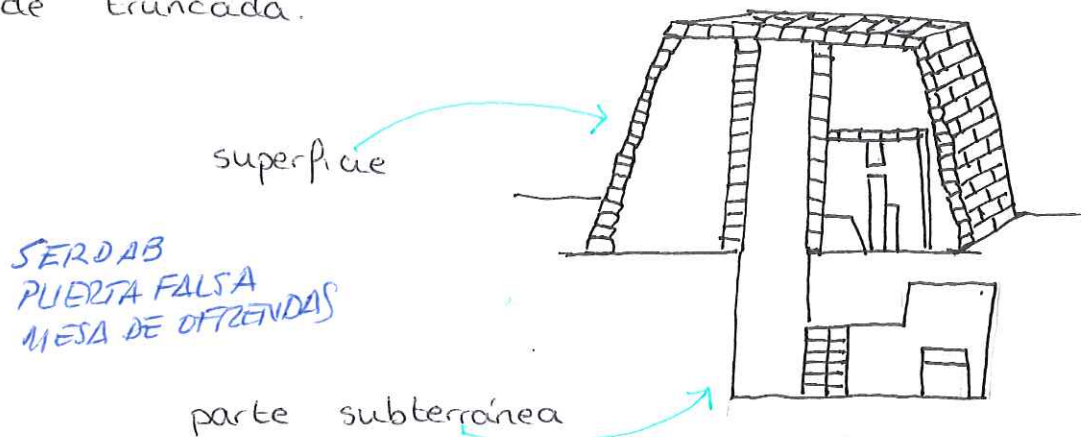 de truncada.
superficie
SERDAB
PUERTA FALSA
MESA DE OFRENDAS
parte subterránea